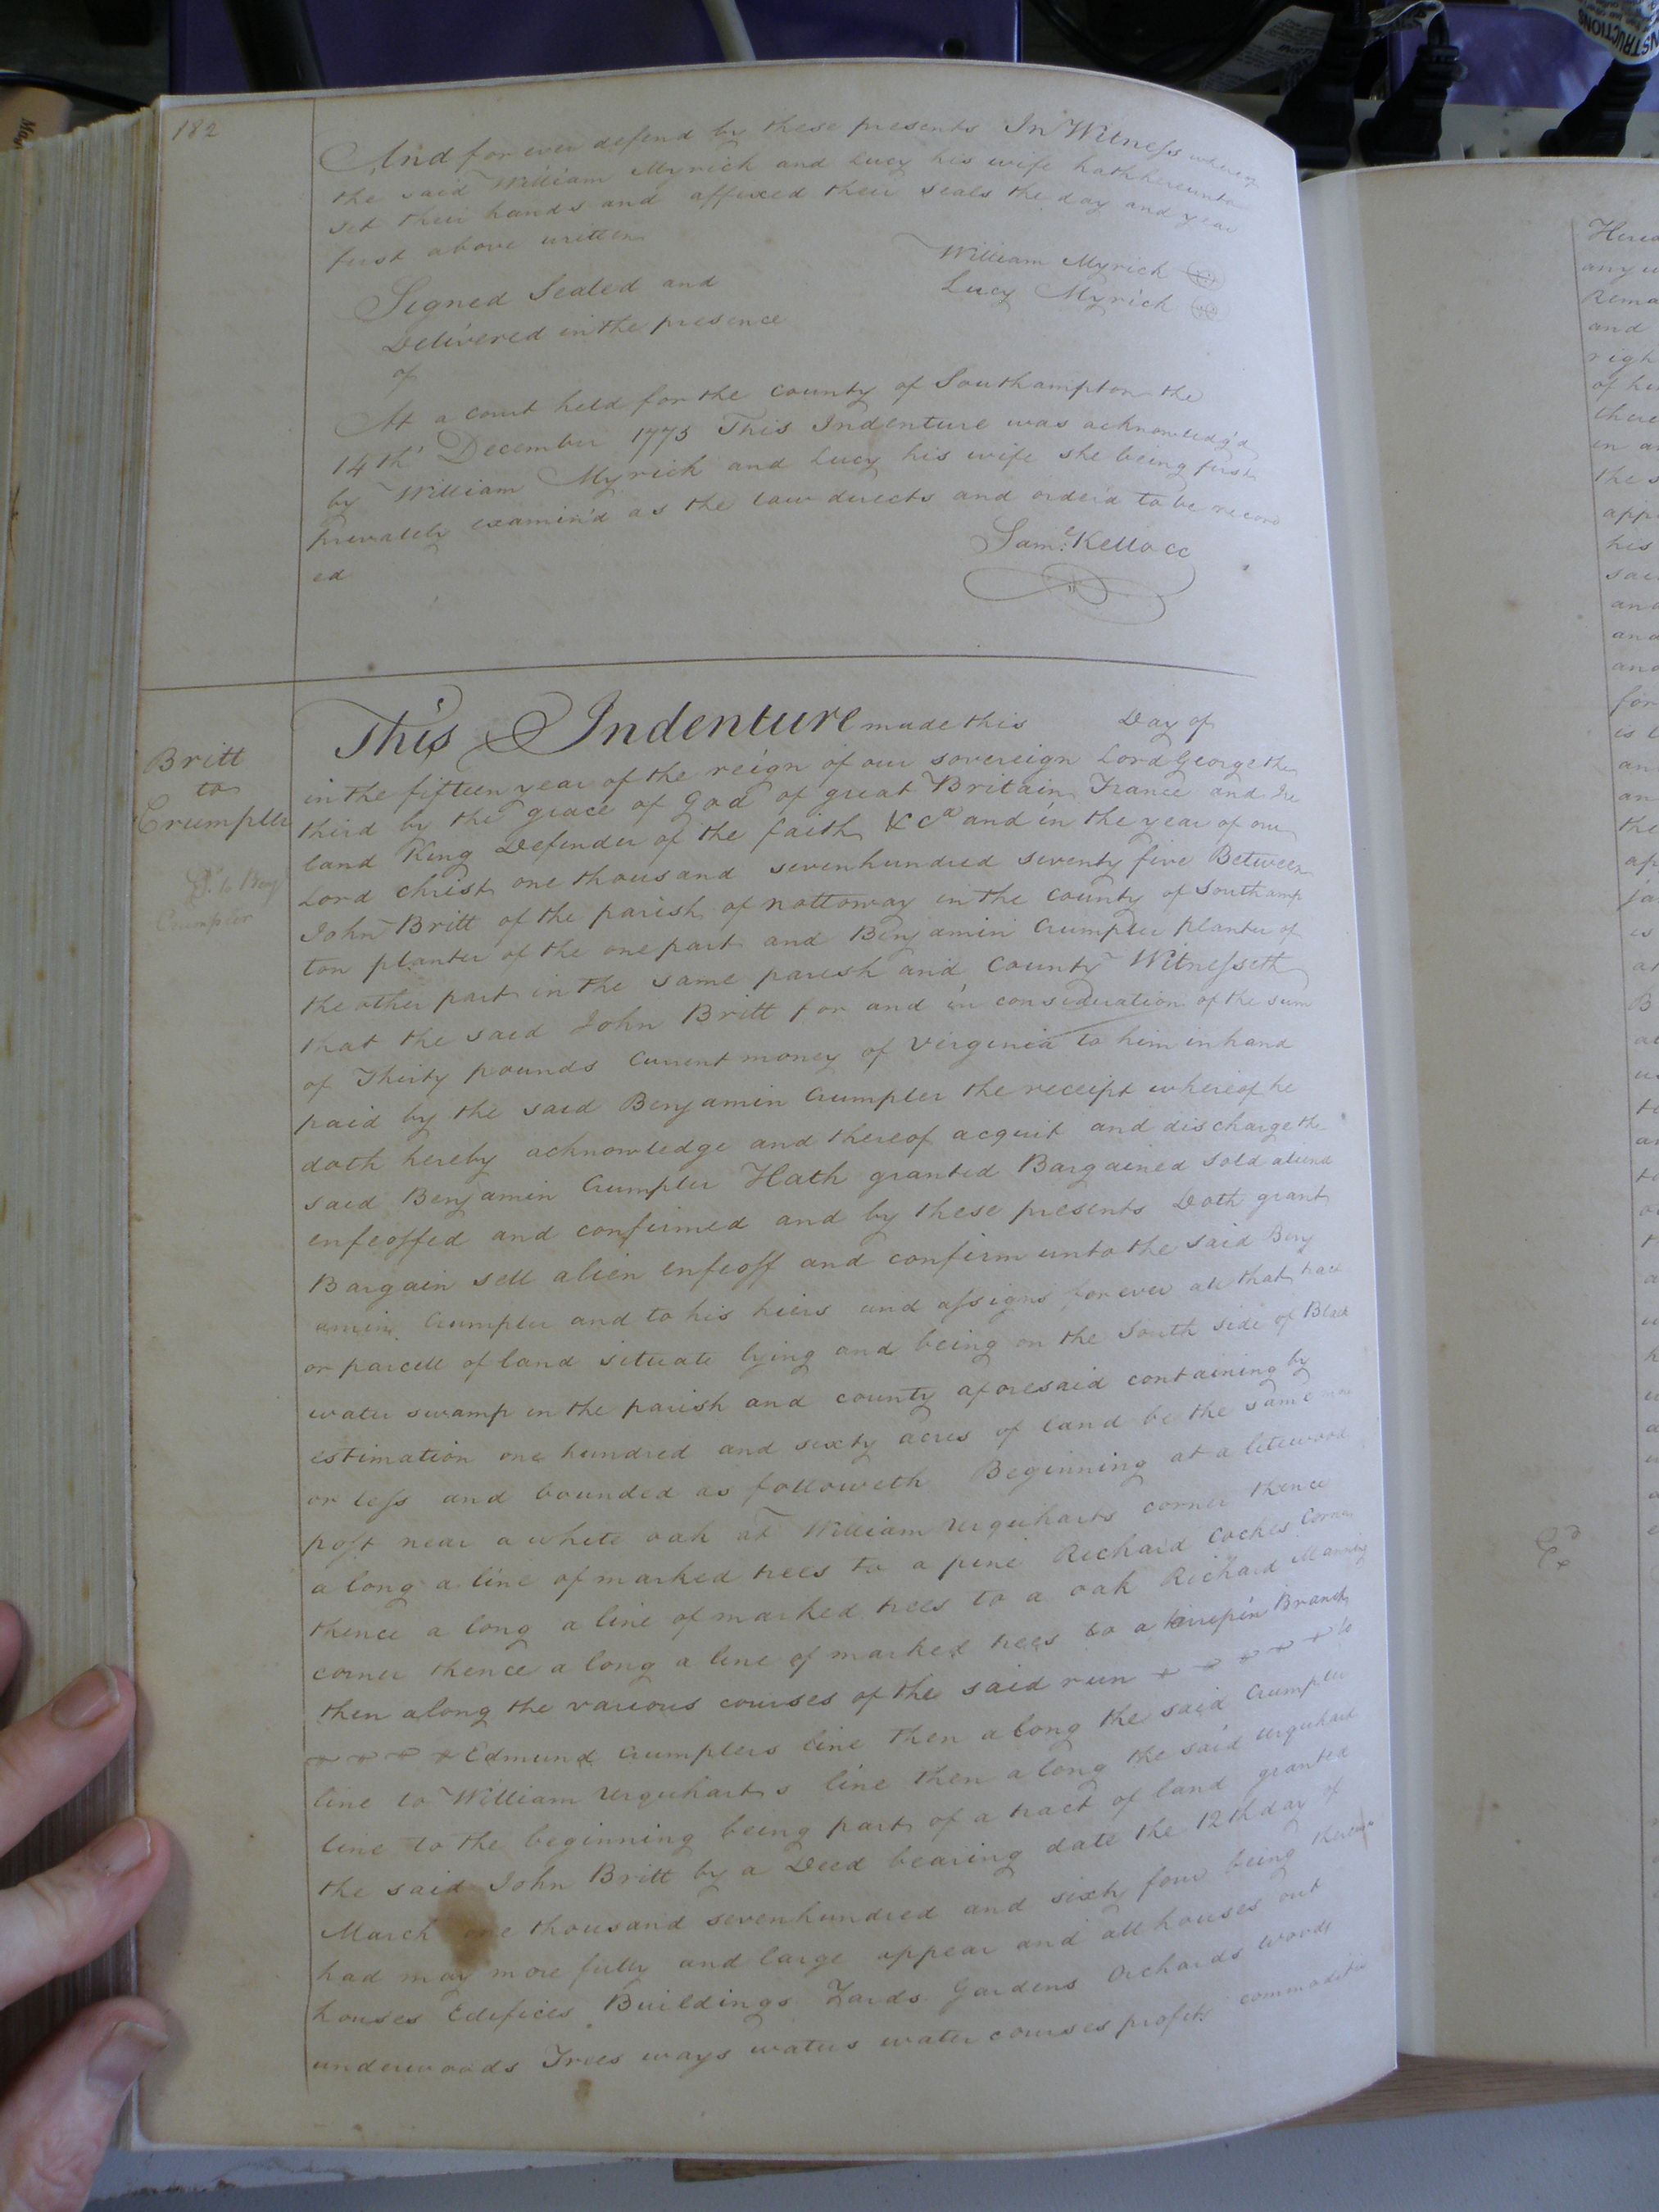 182
And for ever defend by these presents In Witness whereof
the said William Myrick and Lucy his wife hath hereunto
set their hands and affixed their seals the day and year
first above written
William Myrick
Lucy Myrick
Signed Sealed and
Delivered in the presence
of
At a court held for the county of Southampton the
14th December 1775 This Indenture was acknowledg'd
by William Myrick and Lucy his wife she being first
privately examin'd as the law directs and order'd to be record
ed
Saml. Kello CC
Britt
to
Crumpler
D. to Benj
Crumpler
This Indenture made this Day of
in the fifteen year of the reign of our sovereign Lord George the
third by the grace of God of great Britain France and Ire
land King Defender of the faith &ca and in the year of our
Lord christ one thousand sevenhundred seventy five Between
John Britt of the parish of nottoway in the county of Southamp
ton planter of the one part and Benjamin Crumpler planter of
the other part in the same parish and County Witnesseth
that the said John Britt for and in consideration of the sum
of Thirty pounds Current money of Virginia to him in hand
paid by the said Benjamin Crumpler the receipt whereof he
doth hereby acknowledge and thereof acquit and discharge the
said Benjamin Crumpler Hath granted Bargained sold aliend
enfeoffed and confirmed and by these presents Doth grant
Bargain sell alien enfeoff and confirm unto the said Benj
amin Crumpler and to his heirs and assigns for ever all that tract
or parcell of land situate lying and being on the South side of Black
water swamp in the parish and county aforesaid containing by
estimation one hundred and sixty acres of land be the same more
or less and bounded as followeth Beginning at a litewood
post near a white oak at William Urquharts corner thence
a long a line of marked trees to a pine Richard Cockes Corner
thence a long a line of marked trees to a oak Richard Manning
corner thence a long a line of marked trees to a Branch
then along the various courses of the said run to
Edmund Crumplers line then along the said Crumpler
line to William Urquharts line then along the said Urquhart
line to the beginning being part of a tract of land granted
the said John Britt by a Deed bearing date the 12th day of
March one thousand sevenhundred and sixty four being
had may more fully and large appear and all houses out
houses Edifices Buildings Yards Gardens Orchards Woods
underwoods Trees ways waters water courses profits commodities
Herea
any
Rema
and
righ
of he
there
in
the
app
his
sai
and
and
and
for
is
an
an
the
INSTRUCTIONS